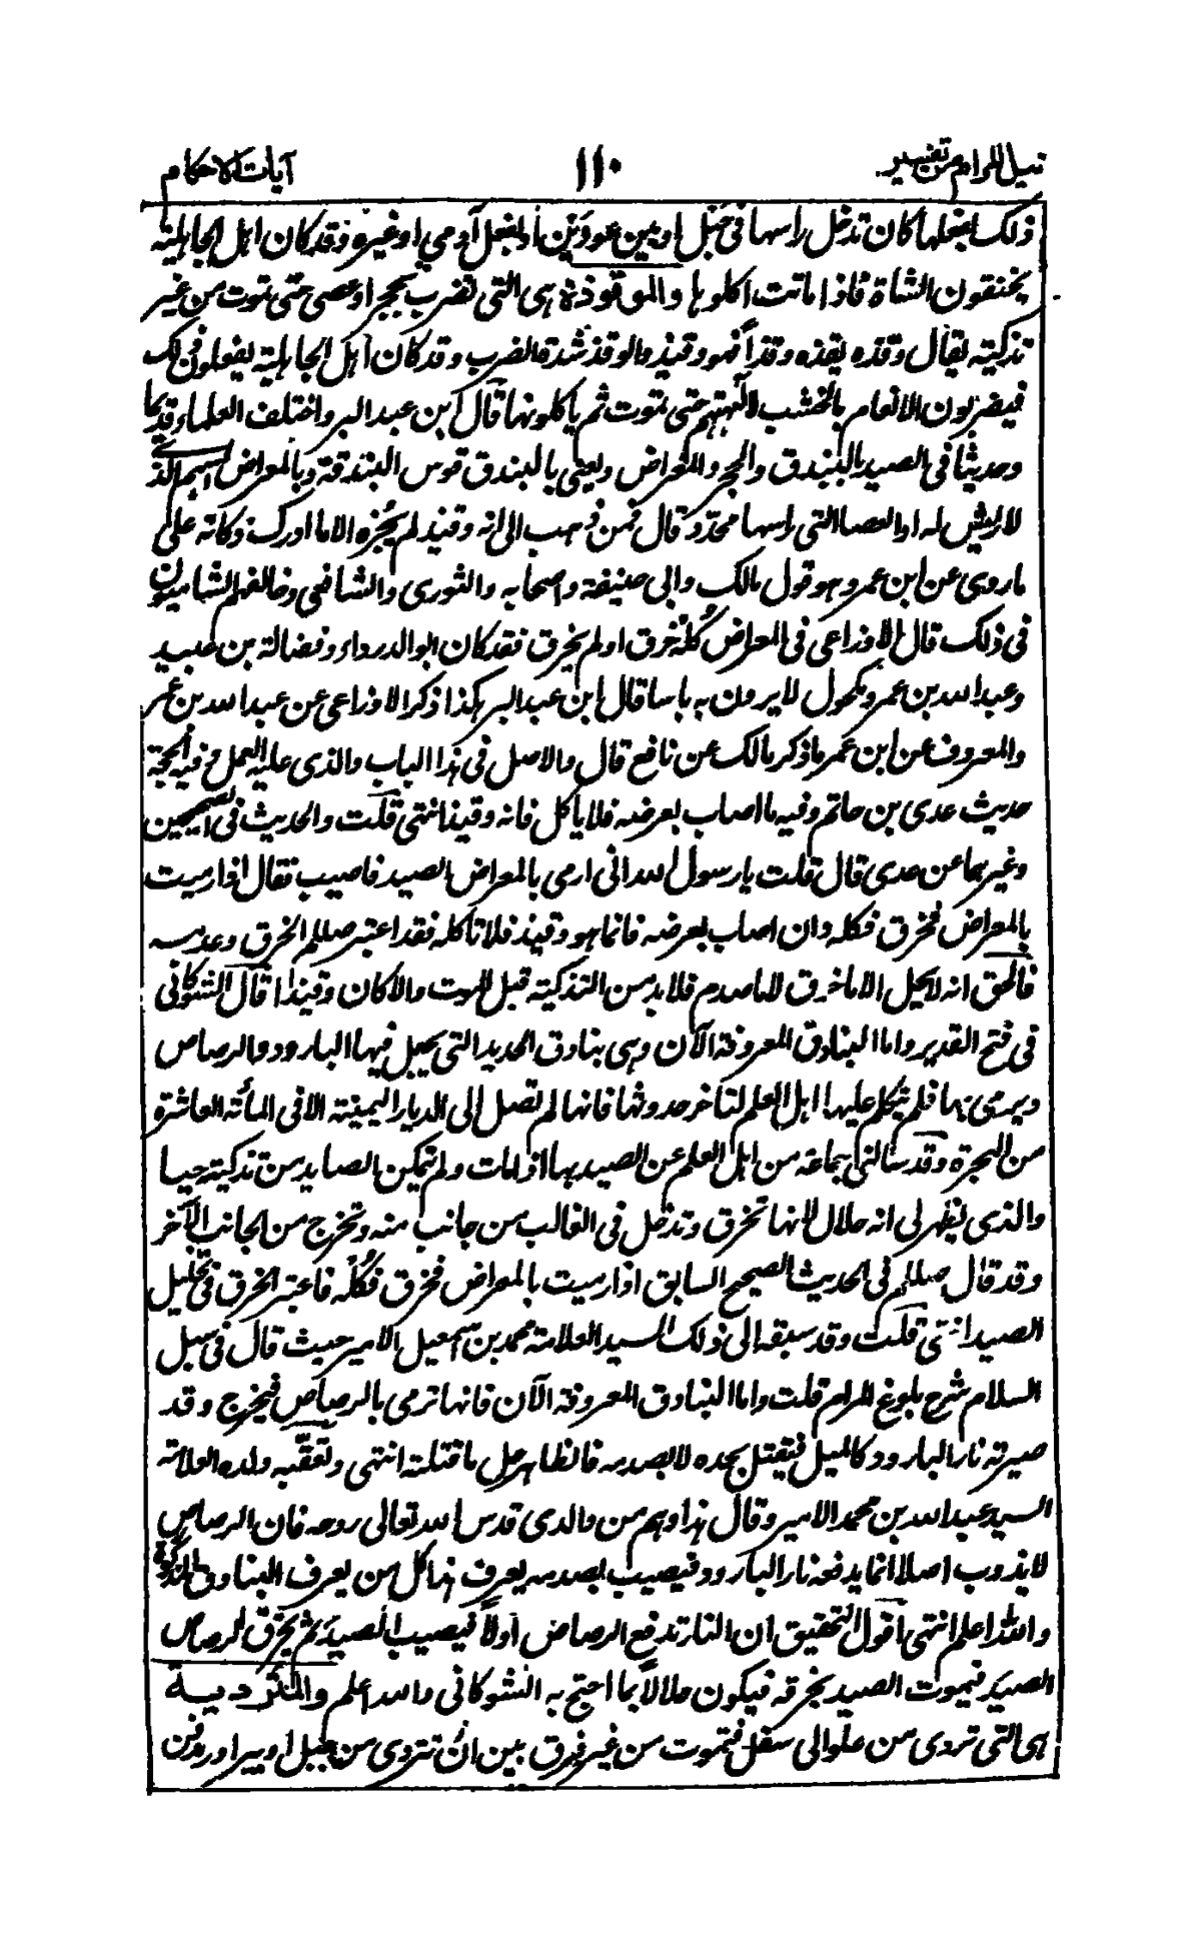 نيل المرام من تفسير ١١٠ آيات الاحكام
ذلك بفعلها كان تدخل راسها فى حبل او بين عودين او بفعل آدمي او غيره وقد كان اهل الجاهلية
يخنقون الشاة فاذا ماتت اكلوها والموقوذة هى التى تضرب بحجر او عصى حتى تموت من غير
تذكية يقال وقذه يقذه وقذاً فهو وقيذ والوقذ شدة الضرب وقد كان اهل الجاهلية يفعلون ذلك
فيضربون الانعام بالخشب لآلهتهم حتى تموت ثم ياكلونها قال ابن عبد البر واختلف العلماء قديما
وحديثا فى الصيد بالبندق والحجر والمعراض ويعنى بالبندق قوس البندقة وبالمعراض السهم الذى
لا ريش له او العصا التى راسها محدد قال فمن ذهب الى انه وقيذ لم يُجزه الا ما ادرك ذكاته على
ما روى عن ابن عمر وهو قول مالك وابى حنيفة واصحابه والثورى والشافعى وخالفهم الشاميون
فى ذلك قال الاوزاعى فى المعراض كُلْه خرق او لم يخرق فقد كان ابو الدرداء وفضالة بن عبيد
وعبد الله بن عمر ومكحول لا يرون به باسا قال ابن عبد البر هكذا ذكر الاوزاعى عن عبد الله بن عمر
والمعروف عن ابن عمر ما ذكر مالك عن نافع قال والاصل فى هذا الباب والذى عليه العمل وفيه الحجة
حديث عدى بن حاتم وفيه ما اصاب بعرضه فلا ياكل فانه وقيذ انتهى قلت والحديث فى الصحيحين
وغيرهما عن عدى قال قلت يا رسول الله انى ارمى بالمعراض الصيد فاصيب فقال اذا رميت
بالمعراض فخرق فكله وان اصاب بعرضه فانما هو وقيذ فلا تاكله فقد اعتبر صللم الخرق وعدمه
فالحق انه لا يحل الا ما خرق لا ما صدم فلا بد من التذكية قبل الموت والا كان وقيذا قال الشوكانى
فى فتح القدير واما البنادق المعروفة الآن وهى بنادق الحديد التى يجعل فيها البارود والرصاص
ويرمى بها فلم يتكلم عليها اهل العلم لتاخر حدوثها فانها لم تصل الى الديار اليمينة الا فى المأئة العاشرة
من الهجرة وقد سالنى جماعة من اهل العلم عن الصيد بها اذا مات ولم يتمكن الصايد من تذكيته حيا
والذى يظهر لى انه حلال لانها تخرق وتدخل فى الغالب من جانب منه وتخرج من الجانب الآخر
وقد قال صللم فى الحديث الصحيح السابق اذا رميت بالمعراض فخرق فكُلْه فاعتبر الخرق فى تحليل
الصيد انتهى قلت وقد سبقه الى ذلك السيد العلامة محمد بن اسمعيل الامير حيث قال فى سبل
السلام شرح بلوغ المرام قلت واما البنادق المعروفة الآن فانها ترمى بالرصاص فيخرج وقد
صيرته نار البارود كالميل فيقتل بحده لا بصدمه فالظاهر حل ما قتلته انتهى وتعقّبه ولده العلامة
السيد عبد الله بن محمد الامير وقال هذا وهم من والدى قدس الله تعالى روحه فان الرصاص
لا يذوب اصلا انما يدفعه نار البارود فيصيب بصدمه يعرف هذا كل من يعرف البنادق المذكورة
والله اعلم انتهى اقول التحقيق ان النار تدفع الرصاص اولاً فيصيب الصيد ثم يخرق الرصاص
الصيد فيموت الصيد بخرقه فيكون حلالاً بما احتج به الشوكانى والله اعلم والمتردية
هى التى تردى من علو الى سفل فتموت من غير فرق بين ان تتردى من جبل او بير او مدفن